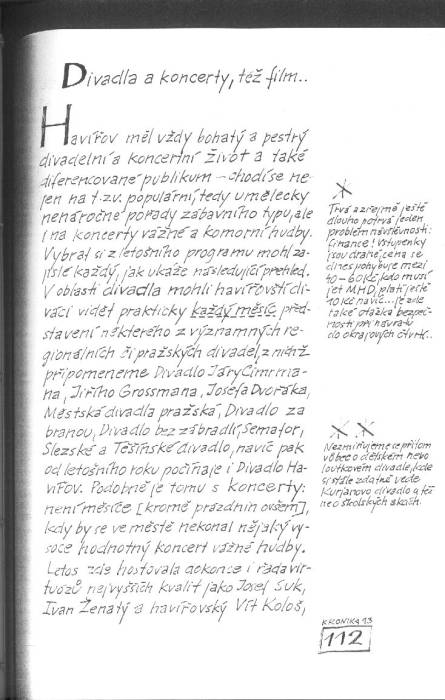 Divadla a koncerty, též film..
Havířov měl vždy bohatý a pestrý
divadelní a koncertní život a také
diferencované publikum – chodí se ne-
jen na t.zv. populární, tedy umělecky
nenáročné pořady zábavního typu, ale
i na koncerty vážné a komorní hudby.
Vybrat si z letošního programu mohl za-
jisté každý, jak ukáže následující přehled.
V oblasti divadla mohli havířovští di-
váci vidět prakticky každý měsíc před-
stavení některého z významných re-
gionálních či pražských divadel, z nichž
připomeneme Divadlo Járy Cimrma-
na, Jiřího Grossmana, Josefa Dvořáka,
Městská divadla pražská, Divadlo za
branou, Divadlo bez zábradlí, Semafor,
Slezské a Těšínské divadlo, navíc pak
od letošního roku počínaje i Divadlo Ha-
vířov. Podobně je tomu s koncerty:
není měsíce [kromě prázdnin ovšem],
kdy by se ve městě nekonal nějaký vy-
soce hodnotný koncert vážné hudby.
Letos zde hostovala dokonce i řada vir-
tuózů nejvyšších kvalit jako Josef Suk,
Ivan Ženatý a havířovský Vít Kološ,
Trvá a zřejmě ještě
dlouho potrvá jeden
problém návštěvnosti:
finance! Vstupenky
jsou drahé, cena se
dnes pohybuje mezi
40–60 Kč, kdo musí
jet MHD, platí ještě
10 Kč navíc... je zde
také otázka bezpeč-
nosti při návratu
do okrajových čtvrtí..
Nezmiňujeme se přitom
vůbec o dětském nebo
loutkovém divadle, kde
si stále zdatně vede
Kurjanovo divadlo a též
ne o školských akcích.
KRONIKA 93
112